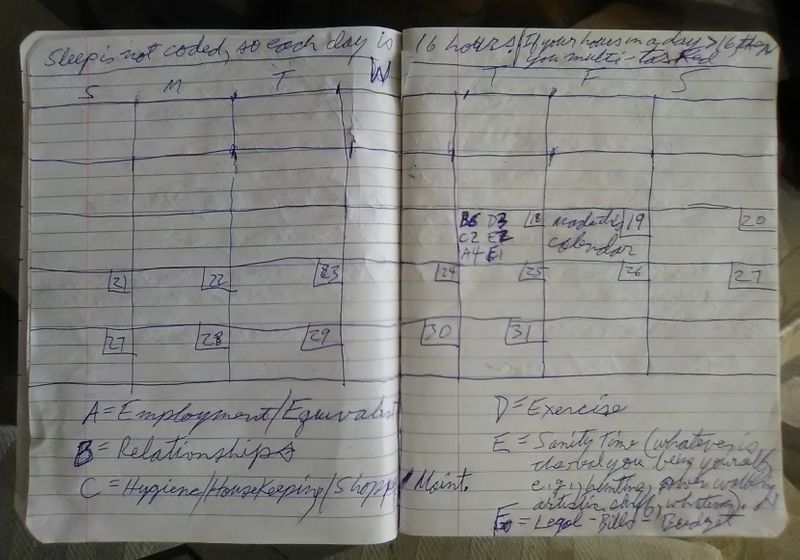 Sleep is not coded, so each day is 16 hours. / If your hours in a day > 16, then
you multi-tasked
S M T W T F S
B6 D3 18 Made this 19 20
C2 E2 calendar
A4 F1
21 22 23 24 25 26 27
27 28 29 30 31
A = Employment/Equivalent
B = Relationships
C = Hygiene/Housekeeping/Shopp/Maint.
D = Exercise
E = Sanity Time (whatever is
you being yourself,
e.g., hunting, power walking
artistic stuff, whatever).
F = Legal - Bills - Budget